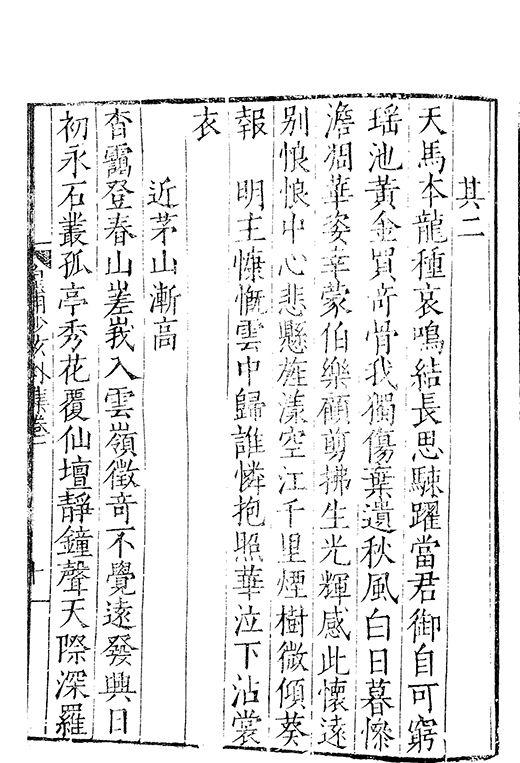 其二
天馬本龍種哀鳴結長思騋躍當君御自可窮
瑶池黃金買奇骨我獨傷棄遺秋風白日暮慘
澹凋華姿幸蒙伯樂顧剪拂生光輝感此懷遠
别悢悢中心悲懸旌漾空江千里煙樹微傾葵
報　明主慷慨雲中歸誰憐抱照華泣下沾裳
衣
近茅山漸高
杳靄登春山嵳峩入雲嶺徵奇不覺遠發興日
初永石叢孤亭秀花覆仙壇靜鐘聲天際深羅
外集卷一